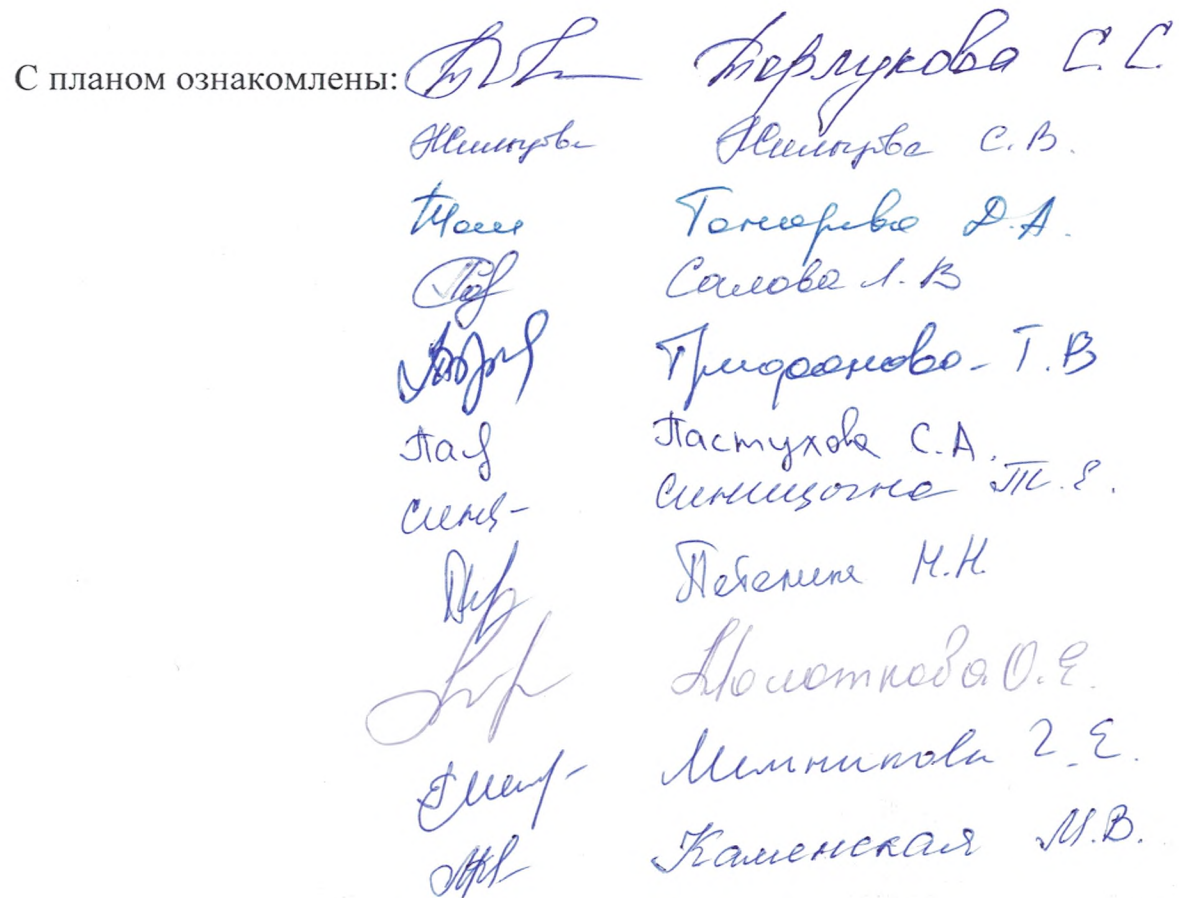 С планом ознакомлены: Борлукова С. С.
Жильцова Жильцова С. В.
Гончарова Д. А.
Салова Л. В
Трифонова Т. В
Пастухова С. А.
Синицына Т. Е.
М. Н.
Молоткова О. Е.
Мельникова Г. Е.
Каменская М. В.